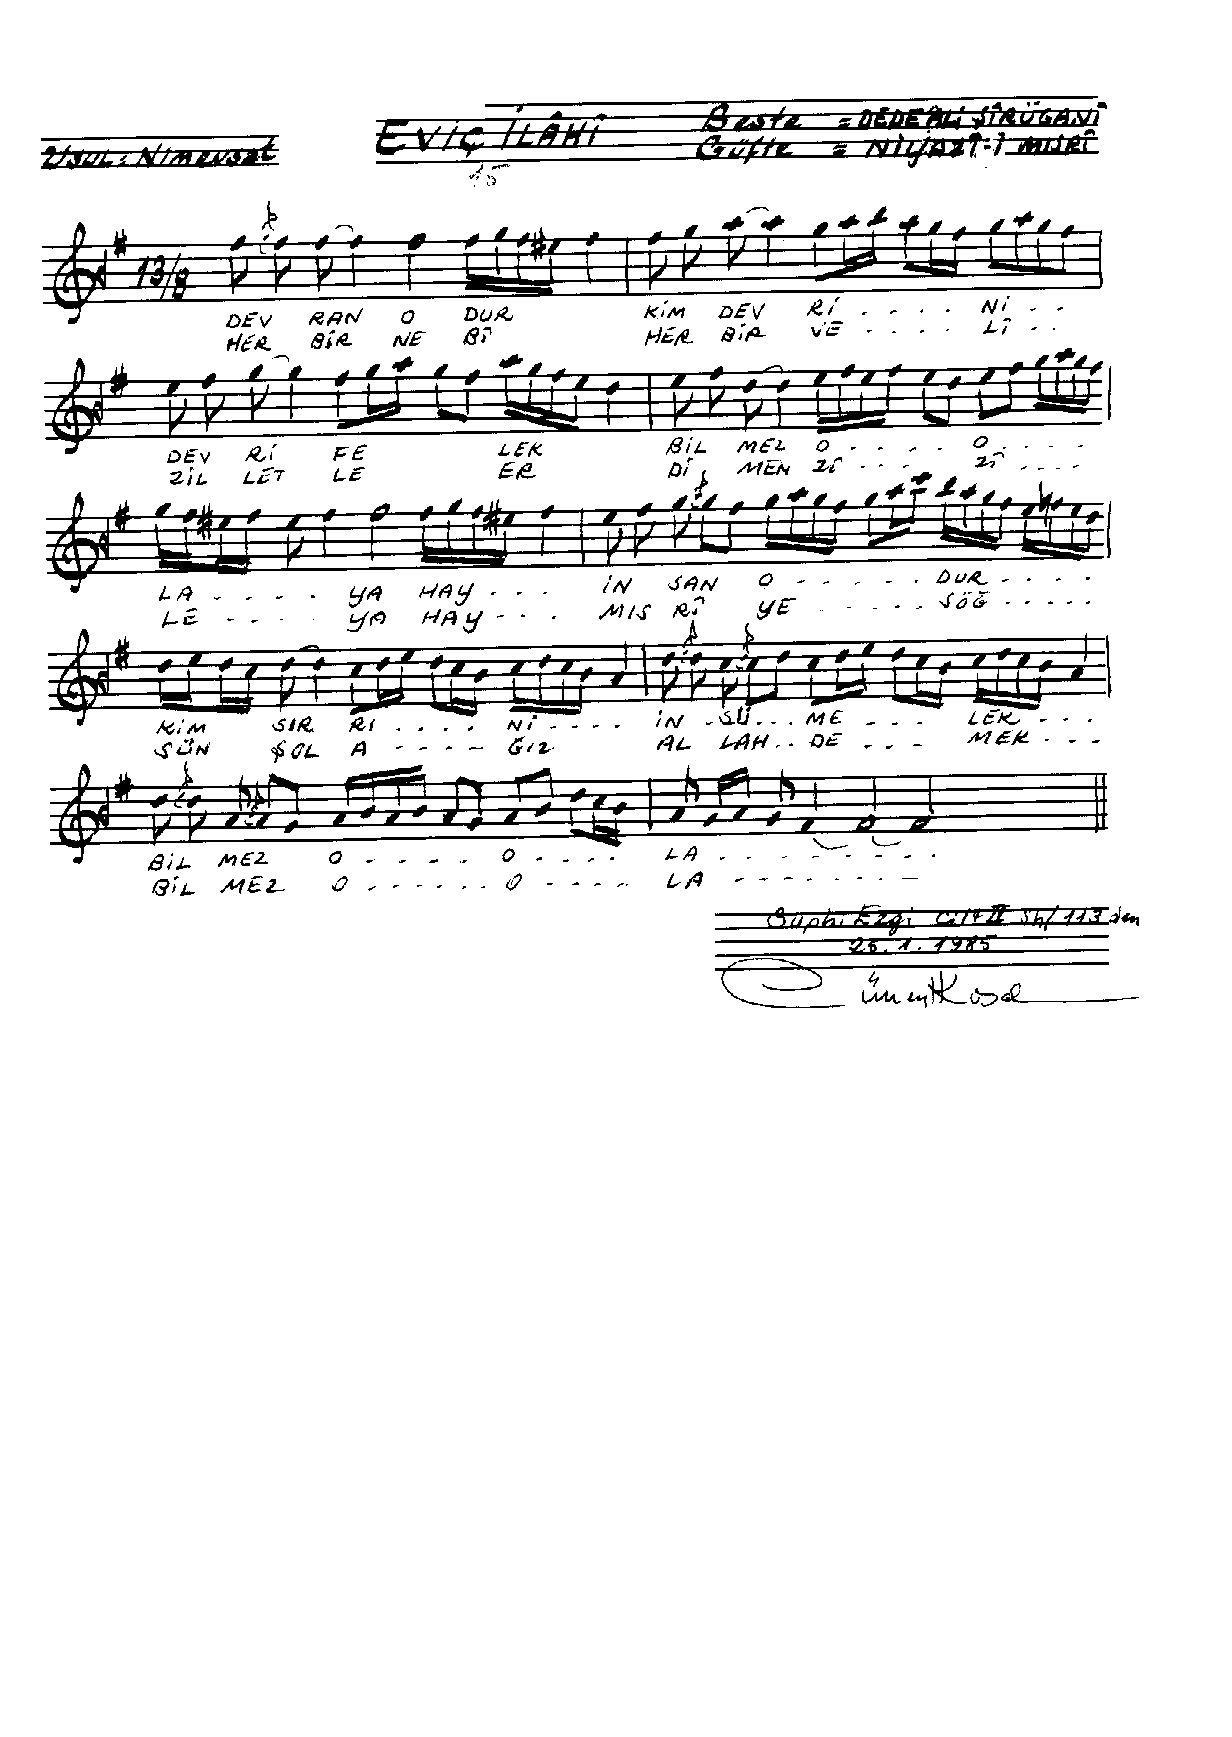 Usul: Nimevsat
EViÇ İLÂHİ
Beste = DEDE ALİ ŞİRÜGANİ
Güfte = NİYAZÎ-İ MISRÎ
15
13/8
DEV RAN O DUR KİM DEV Rİ - - - - Nİ - -
HER BİR NE BÎ HER BİR VE - - - - LÎ - -
DEV Rİ FE LEK BİL MEZ O - - - - O - - - -
ZİL LET LE ER Dİ MEN Zİ - - - Zİ - - - -
LA - - - - - YA HAY - - - İN SAN O - - - - - DUR - - - -
LE - - - - YA HAY - - - MIS RÎ YE - - - - - SÖĞ - - - - -
KİM SIR RI - - - - Nİ - - - - İN - SÜ - - - ME - - - LEK - - -
SÜN ŞOL A - - - - ĞIZ AL LAH - - DE - - - MEK - - -
BİL MEZ O - - - - - O - - - - LA - - - - - - - - -
BİL MEZ O - - - - - - O - - - - LA - - - - - - - -
Suphi Ezgi Cilt II Sh/113 den
25.1.1985